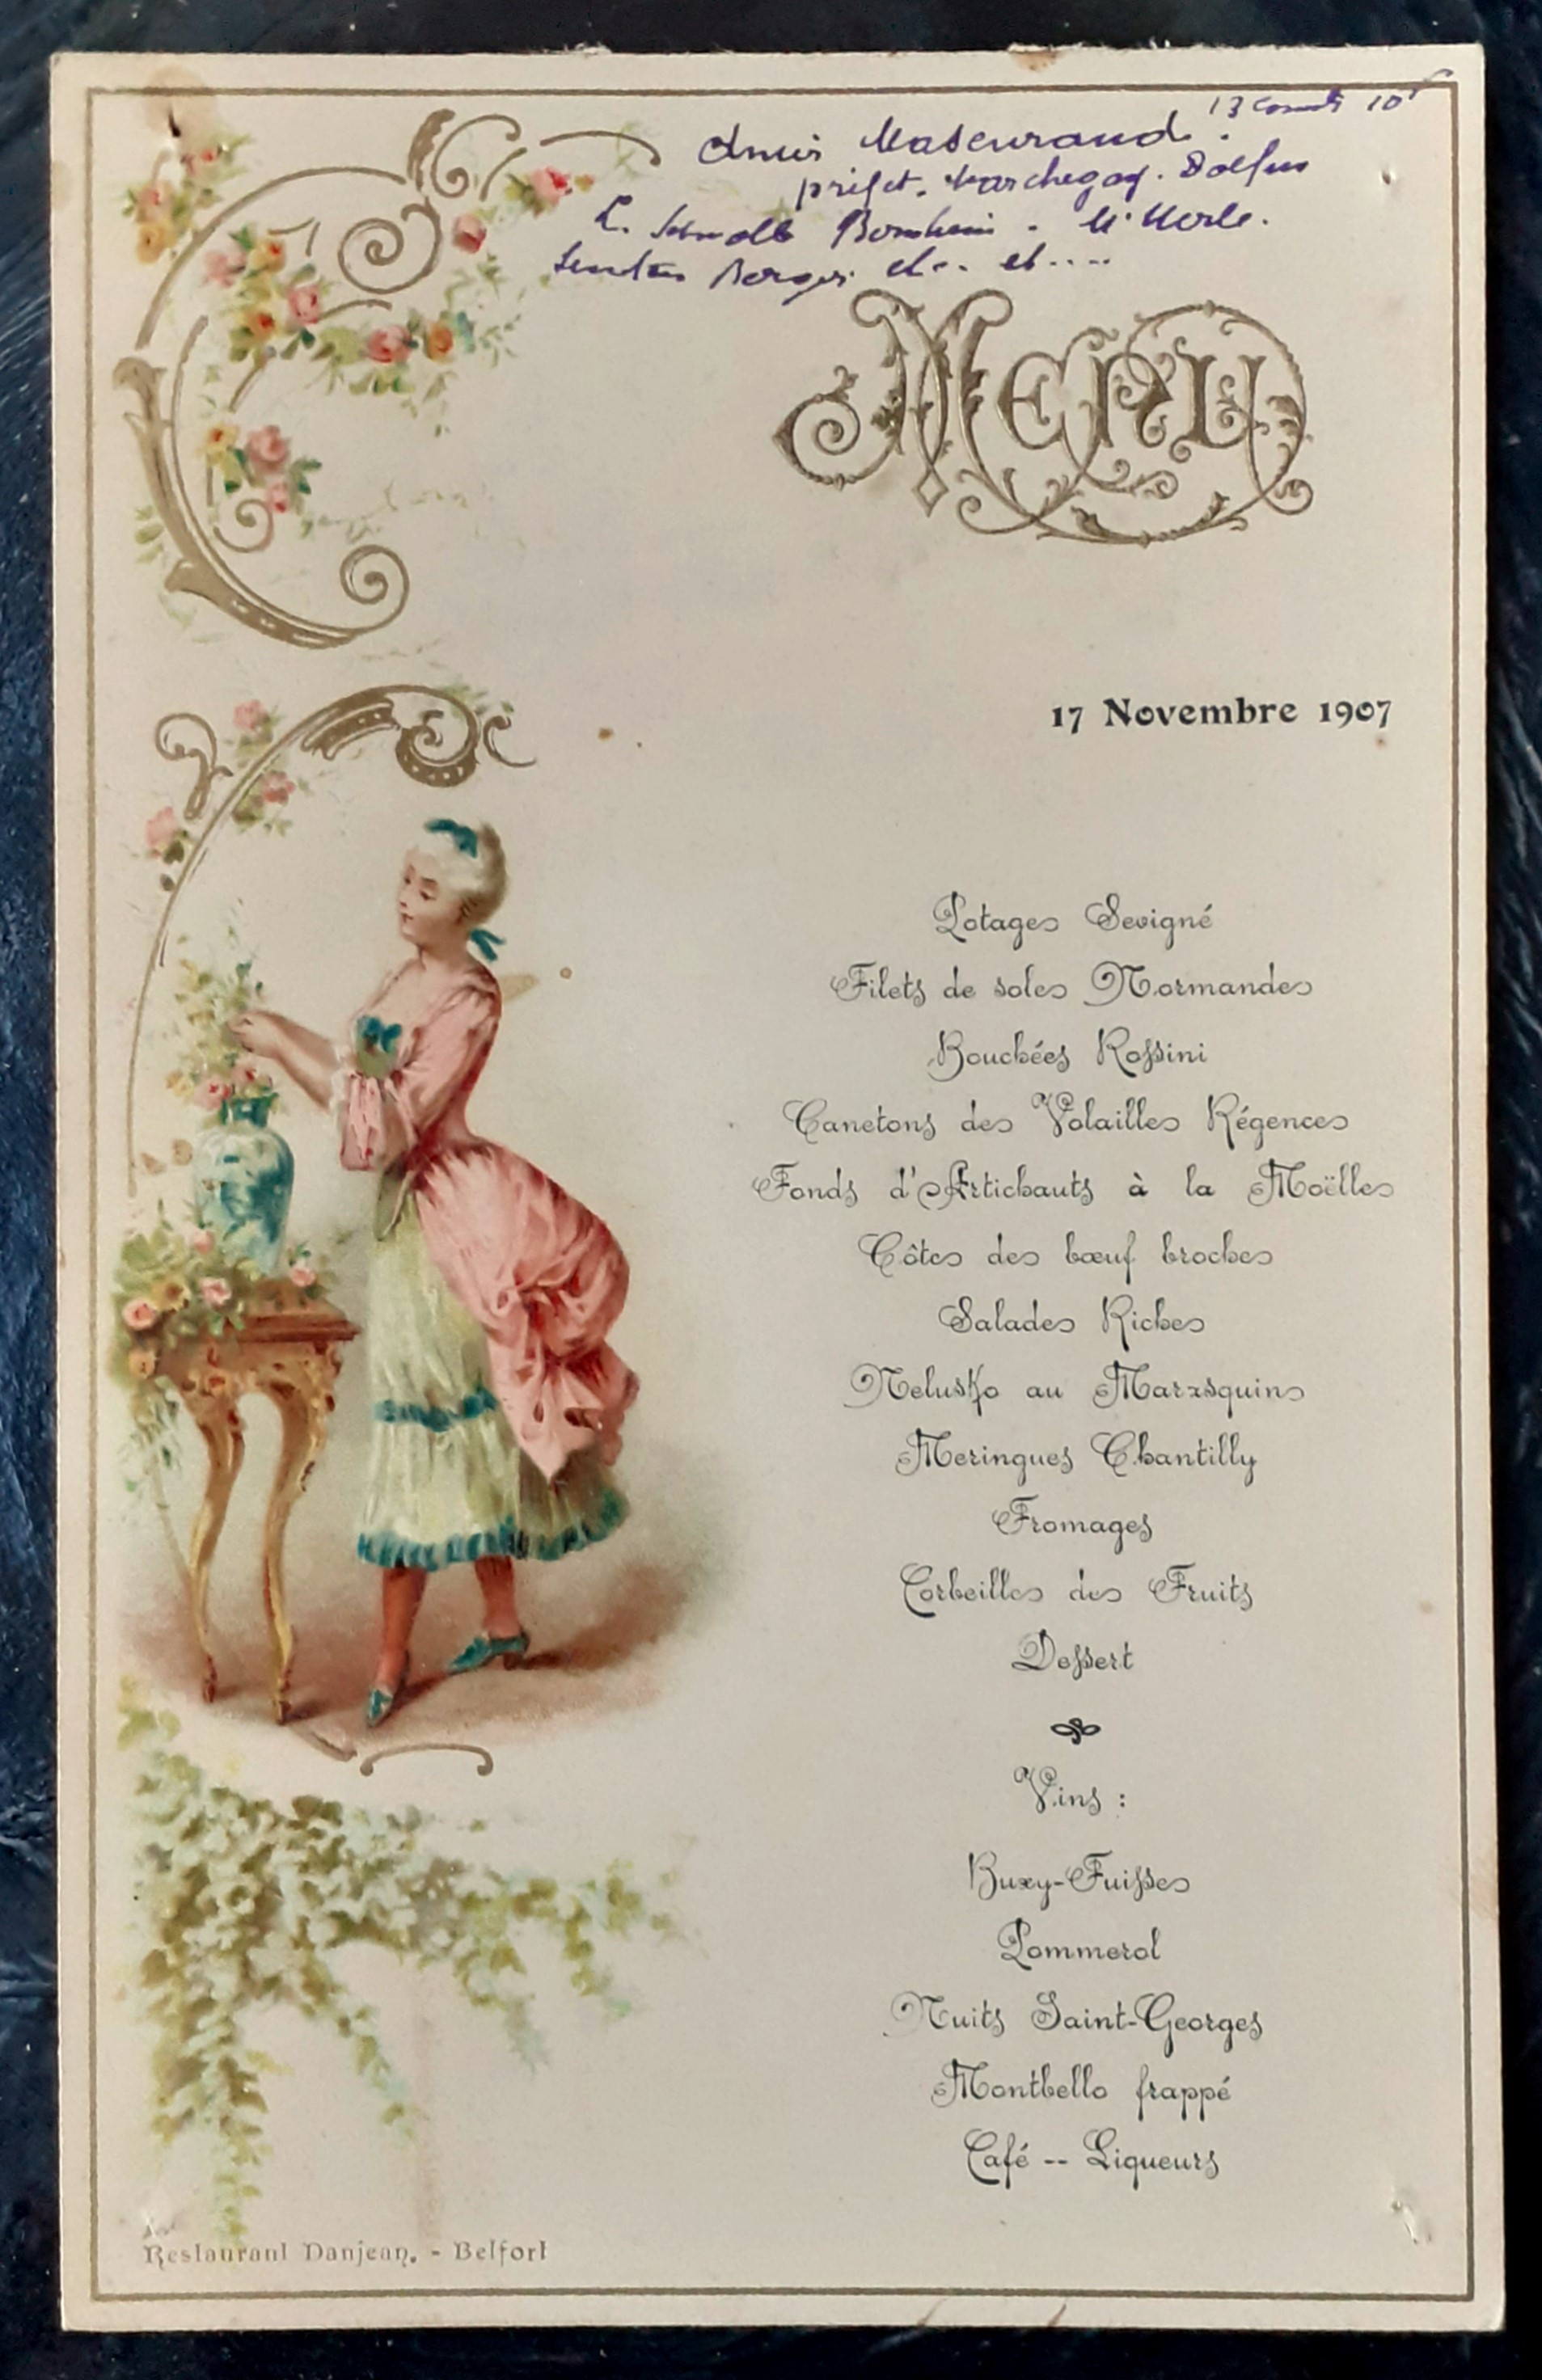 13 10
Mascuraud.
préfet.
et.. et....
Menu
17 Novembre 1907
Potages Sevigné
Filets de soles Normandes
Bouchées Rossini
Canetons des Volailles Régences
Fonds d'Artichauts à la Moëlles
Côtes des bœuf broches
Salades Riches
Nelusko au Marasquins
Meringues Chantilly
Fromages
Corbeilles des Fruits
Dessert
Vins :
Buxy-Fuisses
Pommerol
Nuits Saint-Georges
Montbello frappé
Café -- Liqueurs
Restaurant Danjean. - Belfort